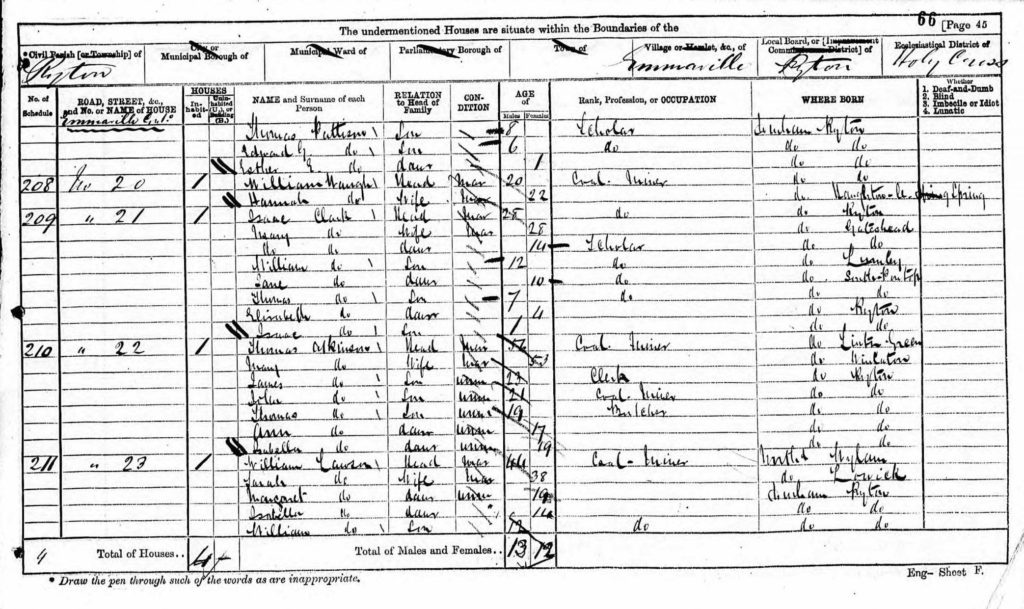 66 [Page 45
The undermentioned Houses are situate within the Boundaries of the
Civil Parish [or Township] of City or Municipal Borough of Municipal Ward of Parliamentary Borough of Town of Village or Hamlet, &c., of Local Board, or [Improvement Commissioners District] of Ecclesiastical District of
Ryton Emmaville Ryton Holy Cross
No. of Schedule ROAD, STREET, &c., and No. or NAME of HOUSE HOUSES In-habit-ed Unin-habited (U.), or Building (B.) NAME and Surname of each Person RELATION to Head of Family CON-DITION AGE of Males Females Rank, Profession, or OCCUPATION WHERE BORN Whether 1. Deaf-and-Dumb 2. Blind 3. Imbecile or Idiot 4. Lunatic
Emmaville
Thomas Pattison Son 8 Scholar Durham Ryton
Edward G. do Son 6 do do do
Esther E. do daur 1 do do
208 No 20 1 William Waugh Head Mar 20 Coal Miner do do
Hannah do Wife Mar 22 do Houghton-le-Spring
209 " 21 1 Isaac Clark Head Mar 28 do do Ryton
Mary do Wife Mar 28 do Gateshead
do do daur 14 Scholar do do
William do Son 12 do do Lumley
Jane do daur 10 do do
Thomas do Son 7 do do do
Elizabeth do daur 4 do Ryton
Isaac do Son 1 do do
210 " 22 1 Thomas Atkinson Head Mar Coal Miner do Lintz Green
Mary do Wife Mar 53 do Winlaton
James do Son unm 23 Clerk do Ryton
John do Son unm 21 Coal Miner do do
Thomas do Son unm 19 Butcher do do
Ann do daur unm 17 do do
Isabella do daur unm 19 do do
211 " 23 1 William Lawson Head Mar 44 Coal-Miner Wylam
Sarah do Wife Mar 38 do Lowick
Margaret do daur unm 19 Durham Ryton
Isabella do daur 14 do do
William do Son 12 do do do
4 Total of Houses.. 4 Total of Males and Females.. 13 12
* Draw the pen through such of the words as are inappropriate. Eng- Sheet F.